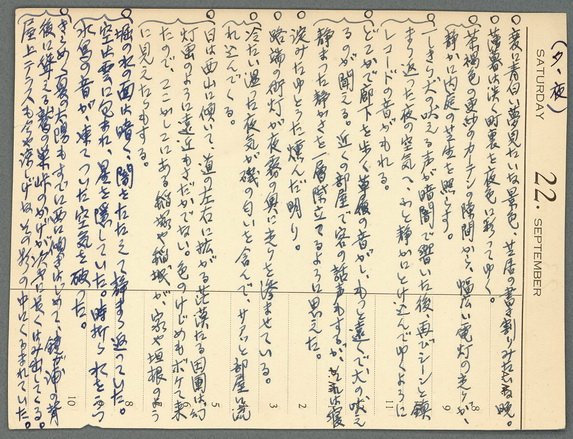 (夕、夜)
SATURDAY 22. SEPTEMBER
変に青白い夢見たいな景色、芝居の書き割りみたいな晩。
薄暮は淡く町裏を夜色に彩ってゆく。
茶褐色の窓のカーテンの隙間から、幅広い電灯の光りが、
静かに内庭の芝生を照らす。
一しきり犬の吠える声が暗闇で響いた後、再びシーンと鎮
まり返った夜の空気へ、わと静かにとけ込んでゆくように
レコードの音がもれる。
どこかで廊下を歩く草履の音がし、わと遠くで犬の吠え
るのが聞える。近くの部屋で客の話声もするが、かえれは寝
静まった静かさを一層際立てるように思えた。
淀みたゆとうた燻んだ明り。
路端の街灯が夜霧の奥に光りを滲ませている。
冷たい湿た夜気が磯の匂いを含んで、サアッと部屋に流
れ込んでくる。
日は西山に傾いて、道の左右に拡がる茫漠たる田圃は幻
灯画のように遠近もさだかでない。色のけじめもボケて来
たので、ここかしこにある稲塚や稲城が家や垣根のよう
に見えたりもする。
堀の水の面は暗く、闇をたたえて静まり返っていた。
空は雲に包まれ、星を隠していた。時折り水をうつ
水鳥の音が、凍てついた空気を破った。
きらめく夏の太陽もすでに西に傾きはじめて、鏡ヶ浦の背
後に聳える鷲の巣峠のかげが大きく長くはみ出してくる。
屋上テラスも今や涼しげなその影の中にくるまれていた。
8
9
11
2
3
5
8
10